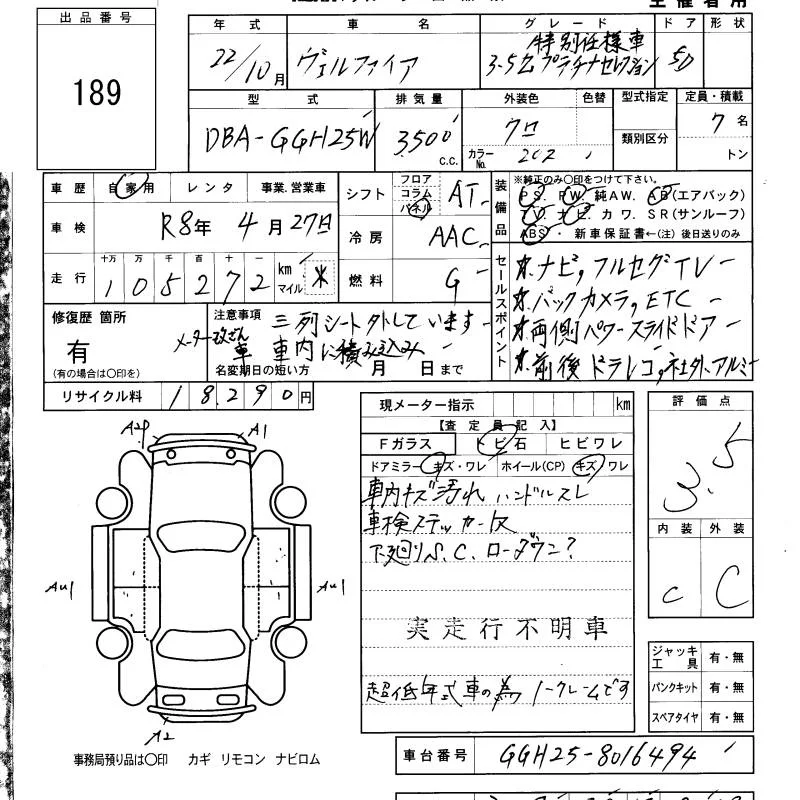 出品番号
189
年式 車名 グレード ドア 形状
22/10月 ヴェルファイア 特別仕様車 3.5Z プラチナセレクション 5D
型式 排気量 外装色 色替 型式指定 定員・積載
DBA-GGH25W 3500 c.c. クロ カラーNo. 202 類別区分 7名 トン
車歴 自家用 レンタ 事業.営業車
車検 R8年 4月27日
走行 十万 万 千 百 十 一
105272 km マイル
シフト フロア コラム パネル AT
冷房 AAC
燃料 G
装備品
※純正のみ〇印をつけて下さい。
PS. PW. 純AW. AB(エアバック)
TV. ナビ. カワ. SR(サンルーフ)
ABS. 新車保証書←(注)後日送りのみ
セールスポイント
ナビ,フルセグTV
バックカメラ,ETC
両側パワースライドドア
前後ドラレコ,社外アルミ
修復歴 箇所
有
(有の場合は〇印を)
注意事項
メーター改ざん車
三列シート外しています
車内に積み込み
名変期日の短い方 月 日まで
リサイクル料 18,290円
現メーター指示 km
【査定員記入】
Fガラス トビ石 ヒビワレ
ドアミラー キズ・ワレ ホイール(CP) キズ ワレ
車内キズ汚れ ハンドルスレ
車検ステッカー欠
下廻りS.C. ローダウン?
実走行不明車
超低年式車の為ノークレームです
評価点
3.5
内装 外装
C C
ジャッキ工具 有・無
パンクキット 有・無
スペアタイヤ 有・無
A2P A1
AU1 AU1
A2
事務局預り品は〇印 カギ リモコン ナビロム
車台番号 GGH25-8016494